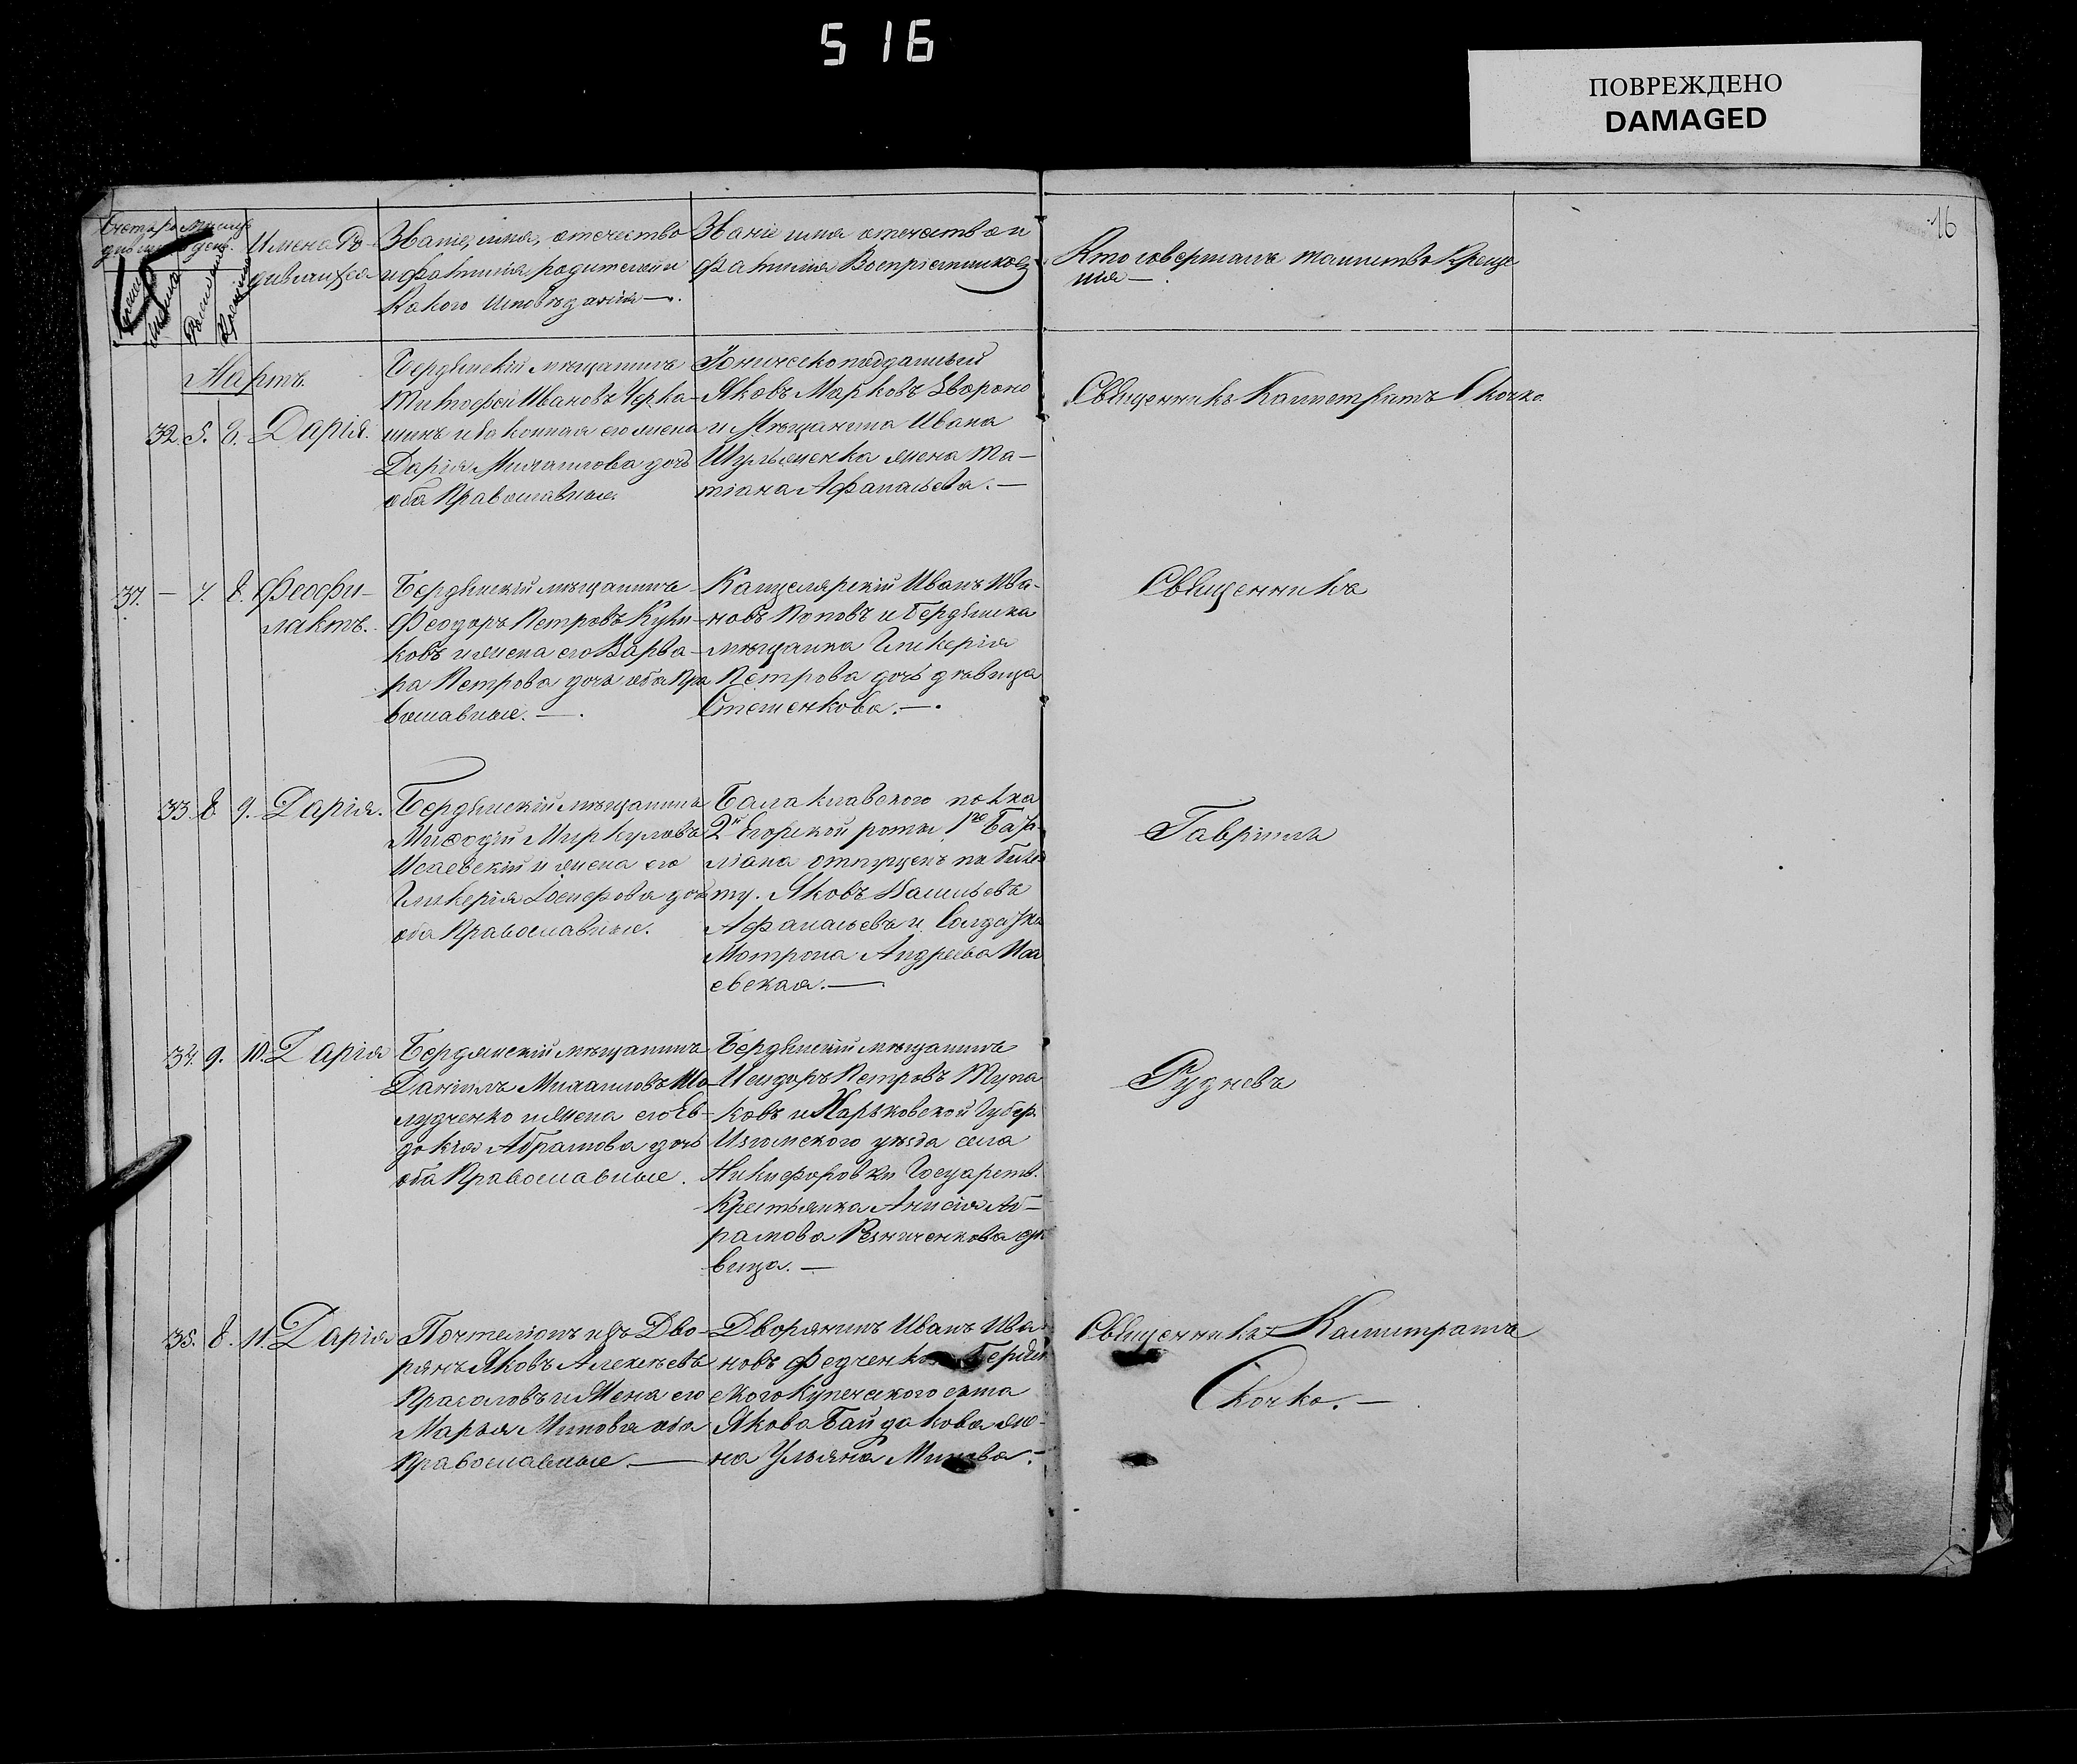 516
ПОВРЕЖДЕНО
DAMAGED
16
Имена Ро-
дившихся
Званіе, имя, отечество
и фамилія родителей и
какого исповѣданія —.
Званіе имя отечество и
фамилія Воспріемниковъ
Кто совершалъ таинство Креще
нія —
Мартъ.
32. 5. 6. Дарія.
Бердянскій мѣщанинъ
Ивановъ Черка-
и законная его жена
Дарія Михаилова дочь
оба Православные
Яковъ Марковъ
и Мѣщанина Ивана
Шульженка жена Та-
тіана Афанасьева. —
Священникъ Каллистратъ Скочко.
37. — 7. 8. Феофи-
лактъ.
Бердянскій мѣщанинъ
Феодоръ Петровъ Кули-
ковъ и жена его Варва-
ра Петрова дочь оба Пра
вославные. —.
Канцелярскій Иванъ Ива-
новъ Поповъ и Бердянска
мѣщанка Гликерія
Петрова дочь дѣвица
Стешенкова. —.
Священникъ
33. 8. 9. Дарія.
Бердянскій мѣщанинъ
Меѳодій Меркуловъ
Исаевскій и жена его
Гликерія Іосифова дочь
оба Православные.
Балаклавского полка
2й Егорской роты 1го Ба
ліона отпущенъ по биле
ту. Яковъ Васильевъ
Афанасьевъ и Солдатка
Мотрона Андреева Иса
евская. —
Гавріилъ
34. 9. 10. Дарія
Бердянскій мѣщанинъ
Даніилъ Михаиловъ Шо-
лудченко и жена его Ев-
докія Абрамова дочь
оба Православные.
Бердянскій мѣщанинъ
Исидоръ Петровъ Тупа
ковъ и Харьковской Губер.
Изюмского уѣзда села
Никифоровки Государств.
Крестьянка Анисія Аб-
рамова Резниченкова дѣ
вица. —
Рудневъ
35. 8. 11. Дарія
Почталіонъ изъ Дво-
рянъ Яковъ Алексѣевъ
Прасоловъ и Жена его
Марья Минова оба
Православные. —
Дворянинъ Иванъ Ива-
новъ Федченко Бердян
ского Купеческого сына
Якова Байдакова же-
на Ульяна Минова. —
Священникъ Каллистратъ
Скочко. —